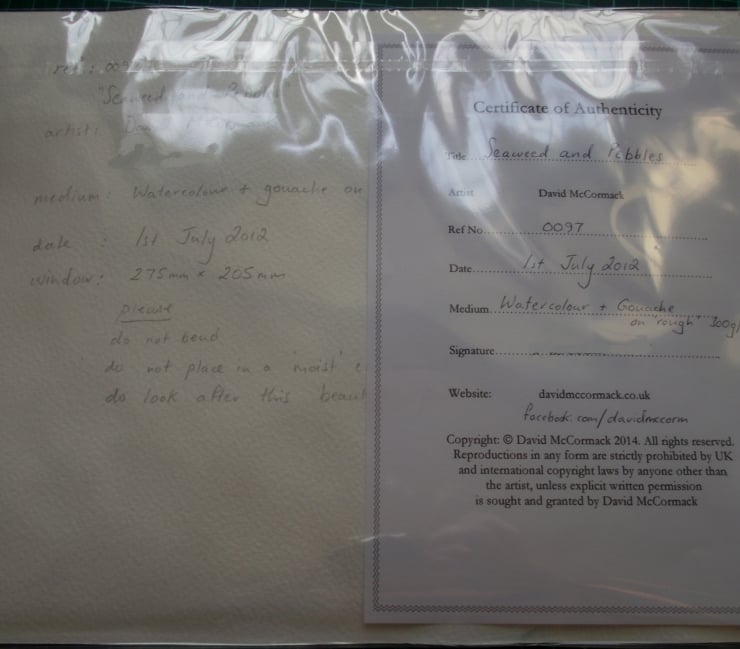 ref: 009
"Seaweed and
artist:
medium: Watercolour + gouache on
date : 1st July 2012
window: 275mm x 205mm
please
do not bend
do not place in a 'moist' e
do look after this beaut
Certificate of Authenticity
Title Seaweed and Pebbles
Artist David McCormack
Ref No. 0097
Date 1st July 2012
Medium Watercolour + Gouache
on 'rough' 300g/
Signature
Website: davidmccormack.co.uk
facebook.com/davidmccorm
Copyright: © David McCormack 2014. All rights reserved.
Reproductions in any form are strictly prohibited by UK
and international copyright laws by anyone other than
the artist, unless explicit written permission
is sought and granted by David McCormack